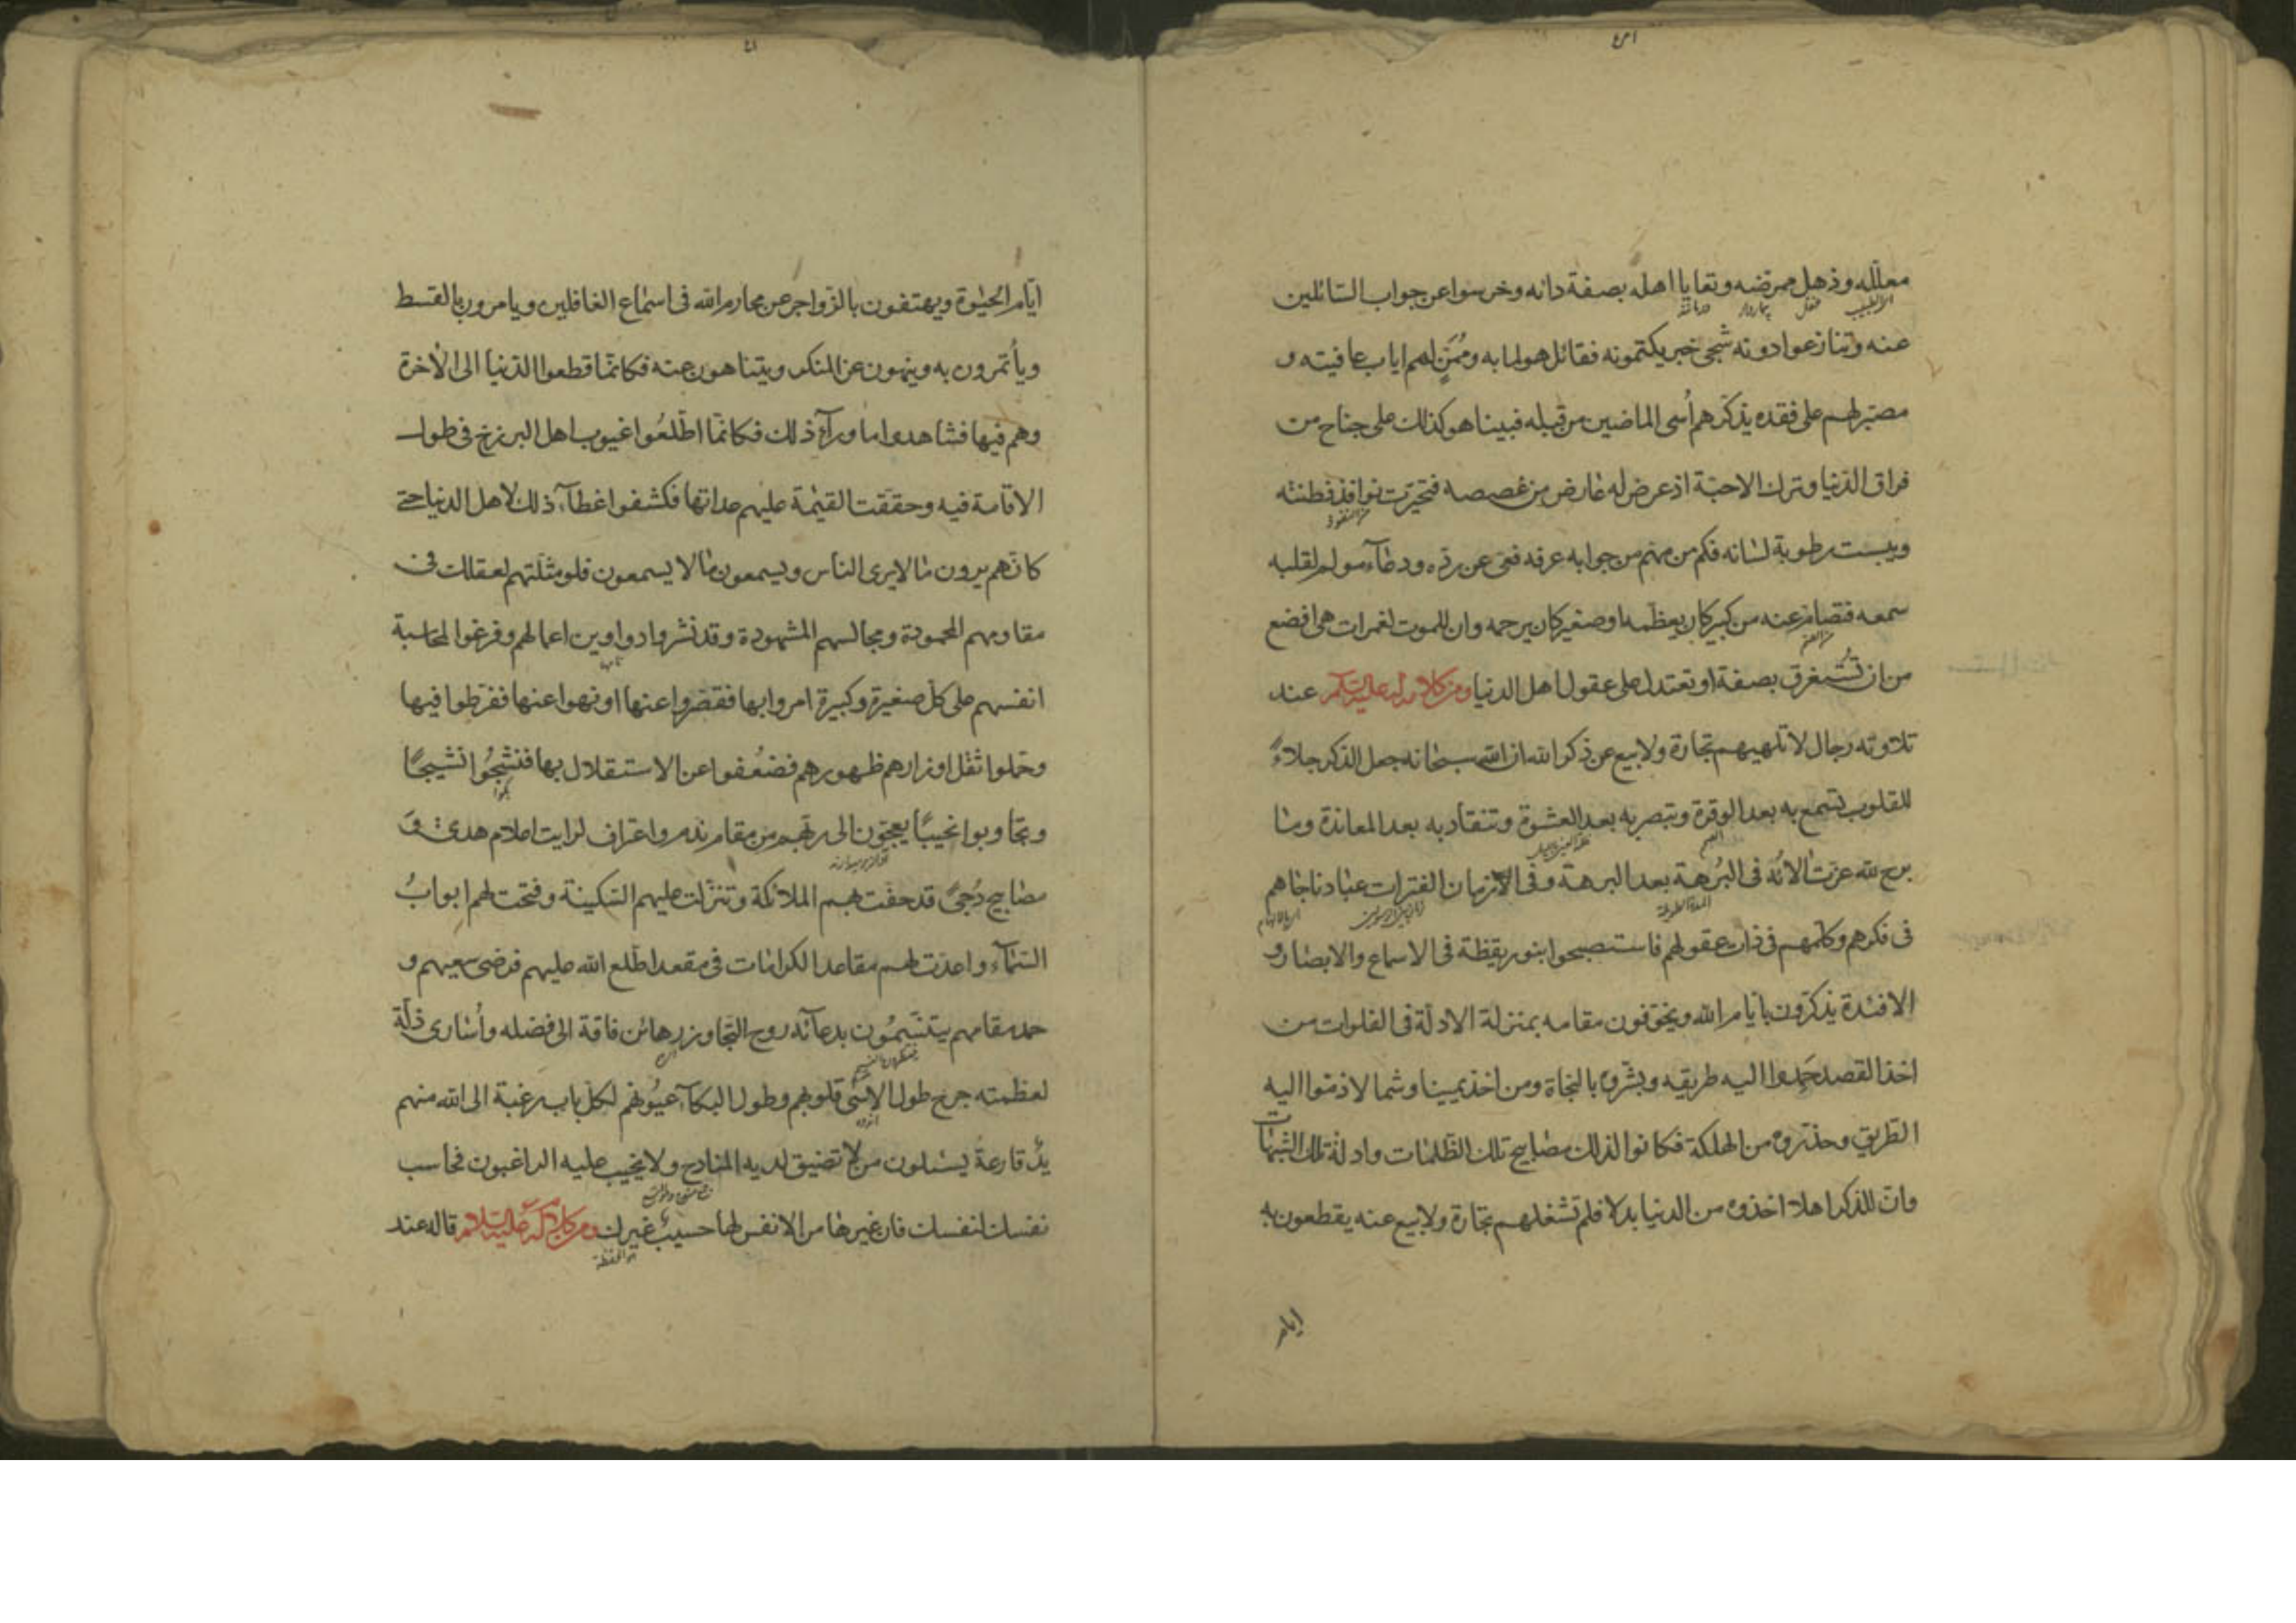 معلله وذهل ممرضه وتعايا اهله بصفة دائه وخرسوا عن جواب السائلين
عنه وتنازعوا دونه شجى خبر يكتمونه فقائل هو لما به وممن لهم اياب عافيته و
مصبر لهم على فقده يذكرهم أسى الماضين من قبله فبينا هو كذلك على جناح من
فراق الدنيا وترك الاحبة اذ عرض له عارض من غصصه فتحيرت نوافذ فطنته
ويبست رطوبة لسانه فكم من مهم من جوابه عرفه فعى عن رده ودعآء مولم لقلبه
سمعه فتصام عنه من كبير كان يعظمه او صغير كان يرحمه وان للموت لغمرات هى افضع
من ان تستغرق بصفة او تعتدل على عقول اهل الدنيا ومن كلام له عليه السلم عند
تلاوته رجال لا تلهيهم تجارة ولا بيع عن ذكر الله ان الله سبحانه جعل الذكر جلاءً
للقلوب تسمع به بعد الوقرة وتبصر به بعد العشوة وتنقاد به بعد المعاندة وما
برح لله عزت الائه فى البُرهة بعد البرهة وفى الازمان الفترات عباد ناجاهم
فى فكرهم وكلمهم فى ذات عقولهم فاستصبحوا بنور يقظة فى الاسماع والابصار و
الافئدة يذكرون بايام الله ويخوفون مقامه بمنزلة الادلة فى الفلوات من
اخذ القصد حَمِدوا اليه طريقه وبشروه بالنجاة ومن اخذ يمينا وشمالا ذموا اليه
الطريق وحذروه من الهلكة فكانوا لذلك مصابيح تلك الظلمات وادلة تلك الشبهات
وان للذكر اهلا اخذوه من الدنيا بدلا فلم تشغلهم تجارة ولا بيع عنه يقطعون به
ايام
ايام الحيوة ويهتفون بالزواجر عن محارم الله فى اسماع الغافلين ويامرون بالقسط
ويأتمرون به وينهون عن المنكر ويتناهون عنه فكانما قطعوا الدنيا الى الاخرة
وهم فيها فشاهدوا ما ورآء ذلك فكانما اطلعُوا غيوب اهل البرزخ فى طول
الاقامة فيه وحققت القيمة عليهم عداتها فكشفوا غطآء ذلك لاهل الدنيا حتى
كانهم يرون ما لا يرى الناس ويسمعون ما لا يسمعون فلو مثلتهم لعقلك فى
مقاومهم المحمودة ومجالسهم المشهودة وقد نشروا دواوين اعمالهم وفرغوا لمحاسبة
انفسهم على كل صغيرة وكبيرة امروا بها فقصروا عنها او نهوا عنها ففرطوا فيها
وحملوا ثقل اوزارهم ظهورهم فضعُفوا عن الاستقلال بها فنشجُوا نشيجًا
وتجاوبوا نحيبًا يعجون الى ربهم من مقام ندم واعتراف لرايت اعلام هدى وَ
مصابيح دُجىً قد حفت بهم الملائكة وتنزلت عليهم السكينة وفتحت لهم ابوابُ
السمآء واعدت لهم مقاعد الكرامات فى مقعد اطلع الله عليهم فرضى سعيهم و
حمد مقامهم يتنسمُون بدعآئه روح التجاوز رهائن فاقة الى فضله وأسارى ذلة
لعظمته جرح طول الاسى قلوبهم وطول البكآء عيُونهم لكل باب رغبة الى الله منهم
يدٌ قارعة يسئلون من لا تضيق لديه المنادح ولا يخيب عليه الراغبون فحاسب
نفسك لنفسك فان غيرها من الانفس لها حسيبٌ غيرك ومن كلام له عليه السلام قاله عند